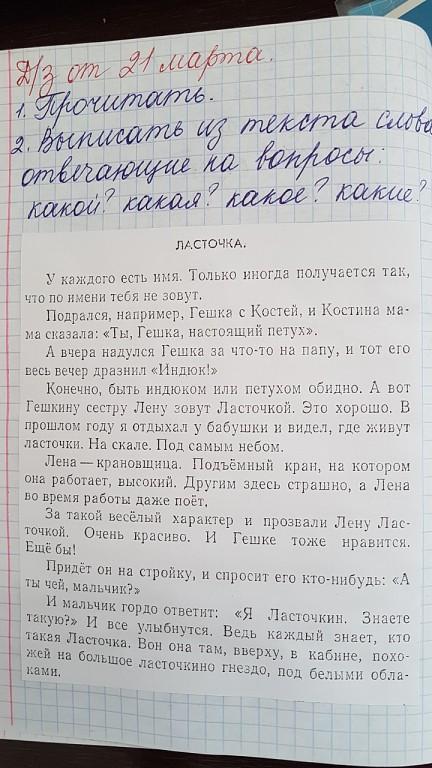 Д/з от 21 марта.
1. Прочитать.
2. Выписать из текста слова
отвечающие на вопросы:
какой? какая? какое? какие?
ЛАСТОЧКА.
У каждого есть имя. Только иногда получается так,
что по имени тебя не зовут.
Подрался, например, Гешка с Костей, и Костина ма-
ма сказала: «Ты, Гешка, настоящий петух».
А вчера надулся Гешка за что-то на папу, и тот его
весь вечер дразнил «Индюк!»
Конечно, быть индюком или петухом обидно. А вот
Гешкину сестру Лену зовут Ласточкой. Это хорошо. В
прошлом году я отдыхал у бабушки и видел, где живут
ласточки. На скале. Под самым небом.
Лена — крановщица. Подъёмный кран, на котором
она работает, высокий. Другим здесь страшно, а Лена
во время работы даже поёт.
За такой весёлый характер и прозвали Лену Лас-
точкой. Очень красиво. И Гешке тоже нравится.
Ещё бы!
Придёт он на стройку, и спросит его кто-нибудь: «А
ты чей, мальчик?»
И мальчик гордо ответит: «Я Ласточкин. Знаете
такую?» И все улыбнутся. Ведь каждый знает, кто
такая Ласточка. Вон она там, вверху, в кабине, похо-
жей на большое ласточкино гнездо, под белыми обла-
ками.